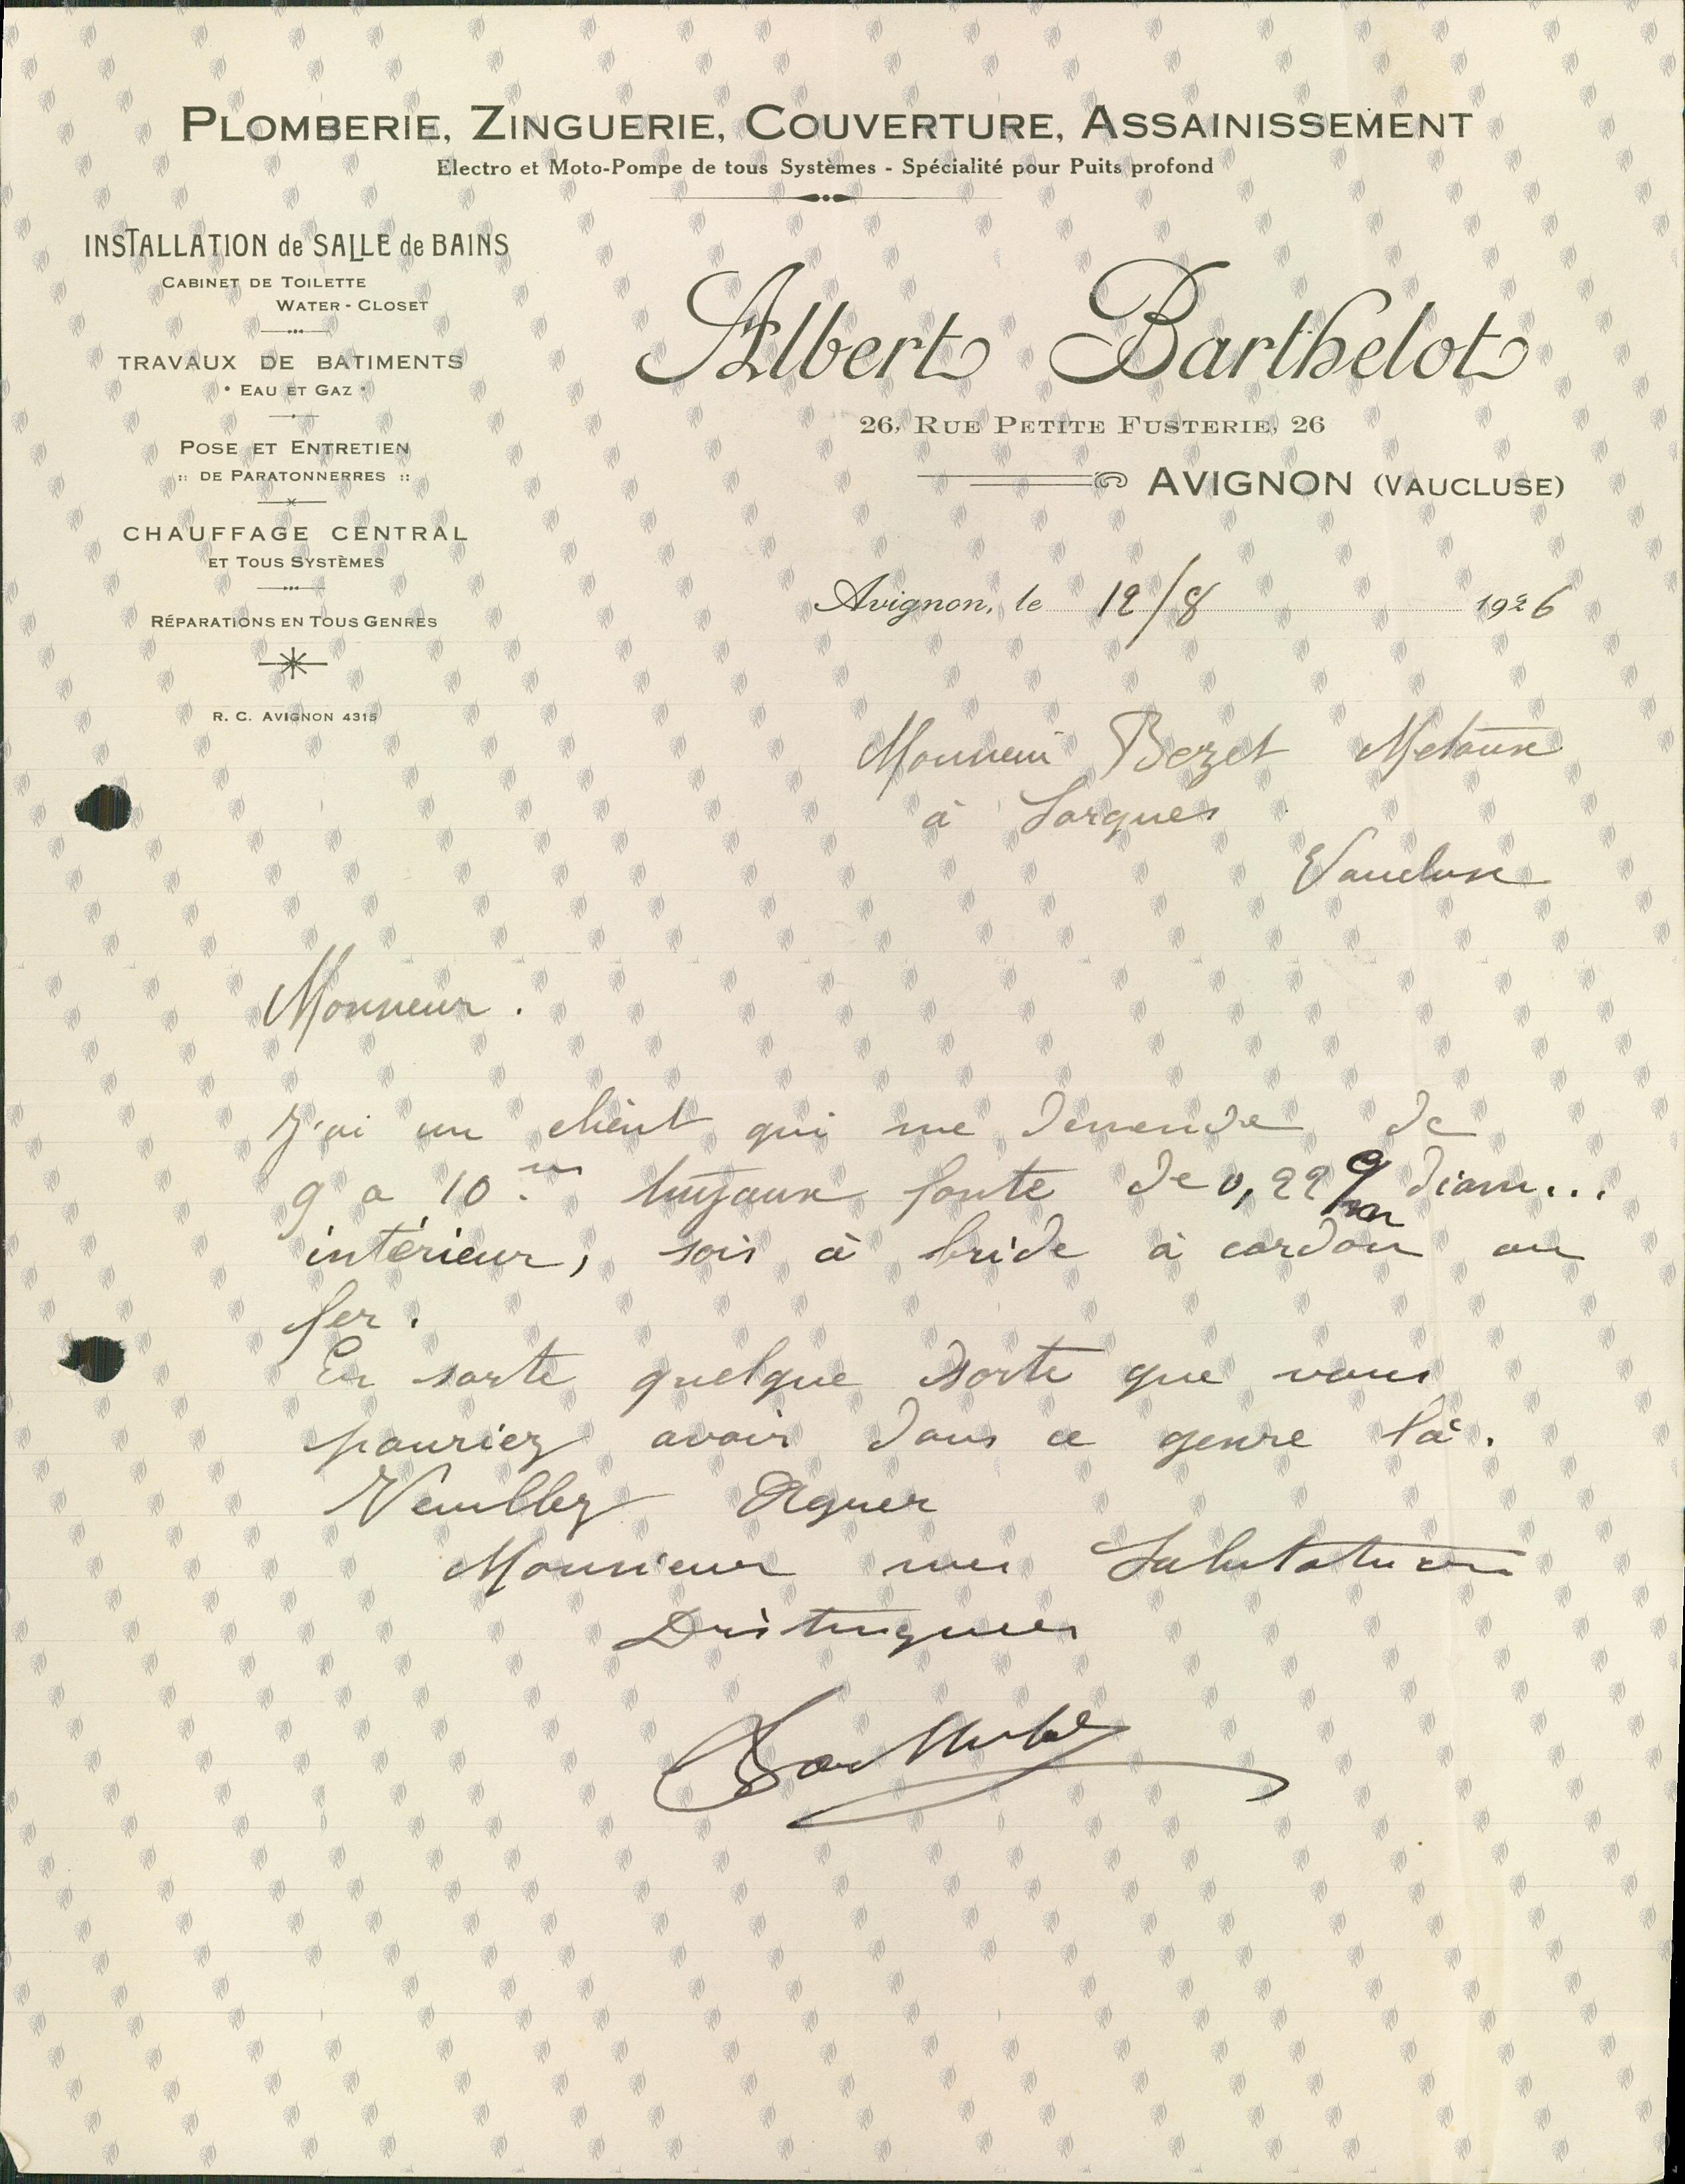 PLOMBERIE, ZINGUERIE, COUVERTURE, ASSAINISSEMENT
Electro et Moto-Pompe de tous Systèmes - Spécialité pour Puits profond
INSTALLATION de SALLE de BAINS
CABINET DE TOILETTE
WATER - CLOSET
TRAVAUX DE BATIMENTS
• EAU ET GAZ •
POSE ET ENTRETIEN
:: DE PARATONNERRES ::
CHAUFFAGE CENTRAL
ET TOUS SYSTÈMES
RÉPARATIONS EN TOUS GENRES
R. C. AVIGNON 4315
Albert Barthelot
26, RUE PETITE FUSTERIE, 26
AVIGNON (VAUCLUSE)
Avignon, le 12/8 1926
Monsieur Bezet Metaux
à Sorgues
Vaucluse
Monsieur.
J'ai un client qui me demende de
9 a 10 m tuyaux fonte de 0,22 diam...
intérieur, sois à bride à cordon ou
fer.
En sorte quelque sorte que vous
pouriez avoir dans ce genre là.
Veuillez Agreer
Monsieur mes Salutations
Distinguées
Barthelot